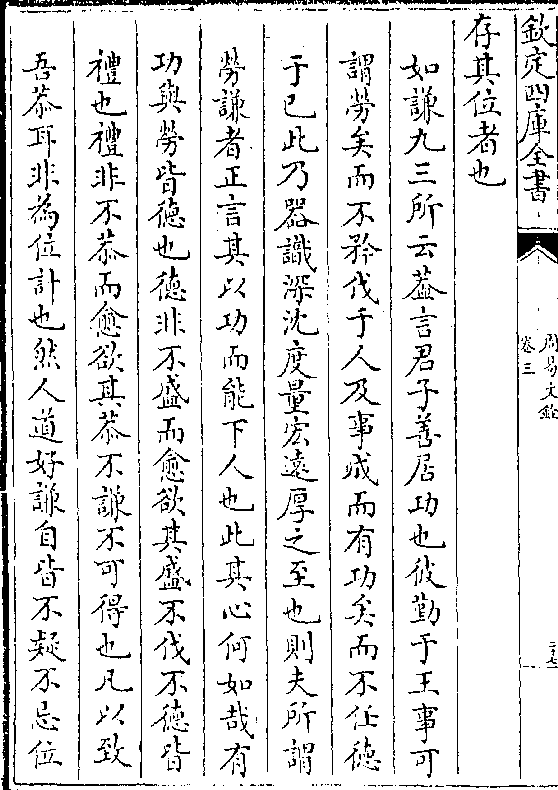 欽定四庫全書
周易文詮
卷三
存其位者也
如謙九三所云葢言君子善居功也彼勤于王事可
謂勞矣而不矜伐于人及事成而有功矣而不任德
于已此乃器識深沈度量宏遠厚之至也則夫所謂
勞謙者正言其以功而能下人也此其心何如哉有
功與勞皆德也德非不盛而愈欲其盛不伐不德皆
禮也禮非不恭而愈欲其恭不謙不可得也凡以致
吾恭耳非為位計也然人道好謙自皆不疑不忌位